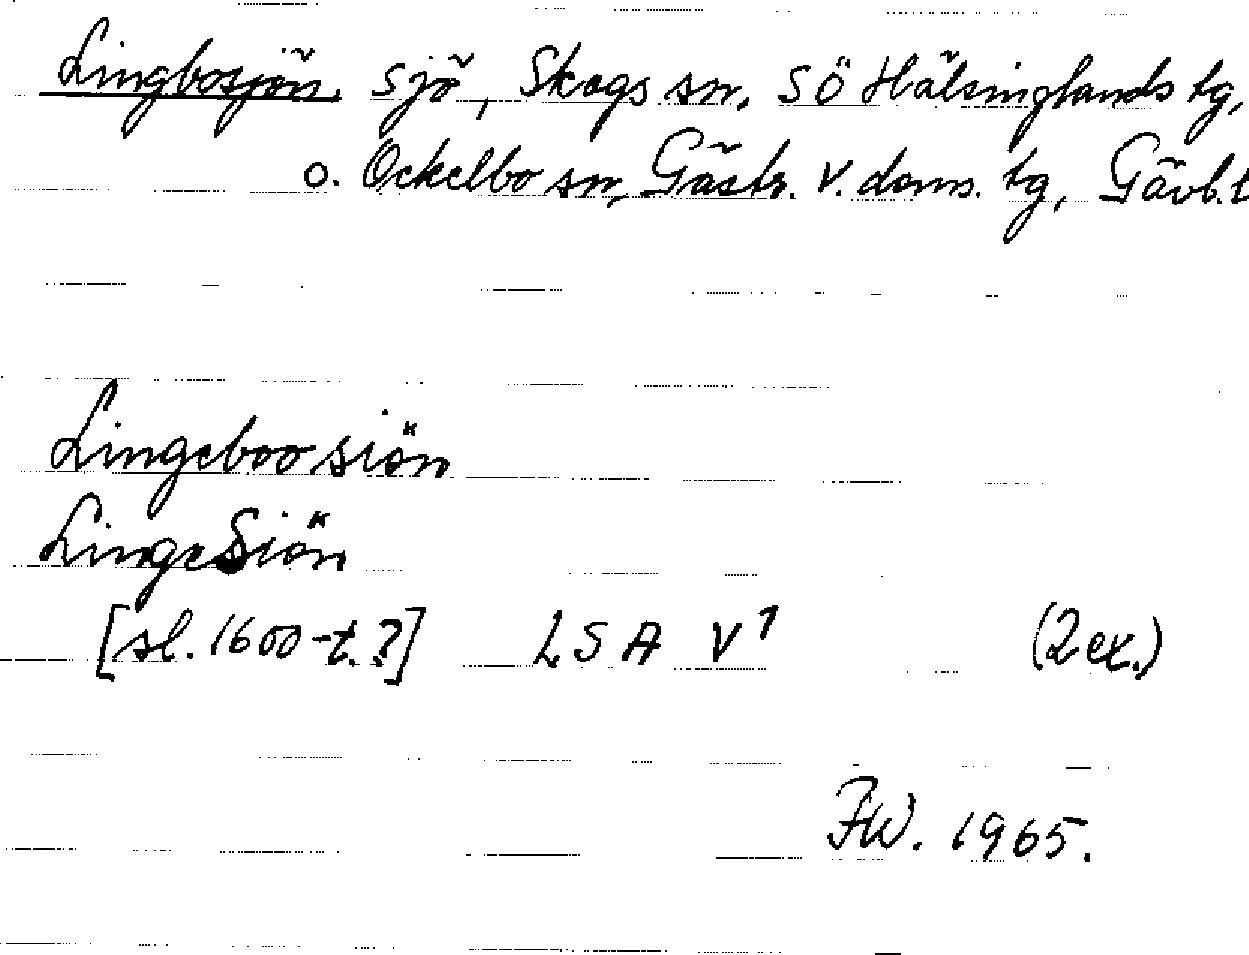 Lingbosjön, sjö, Skogs sn, SÖ Hälsinglands tg,
o. Ockelbo sn, Gästr. v. doms. tg, Gävb. l
Lingeboo siön
LingeSiön
[sl. 1600-t.?] LSA V¹ (2 ex.)
FW. 1965.